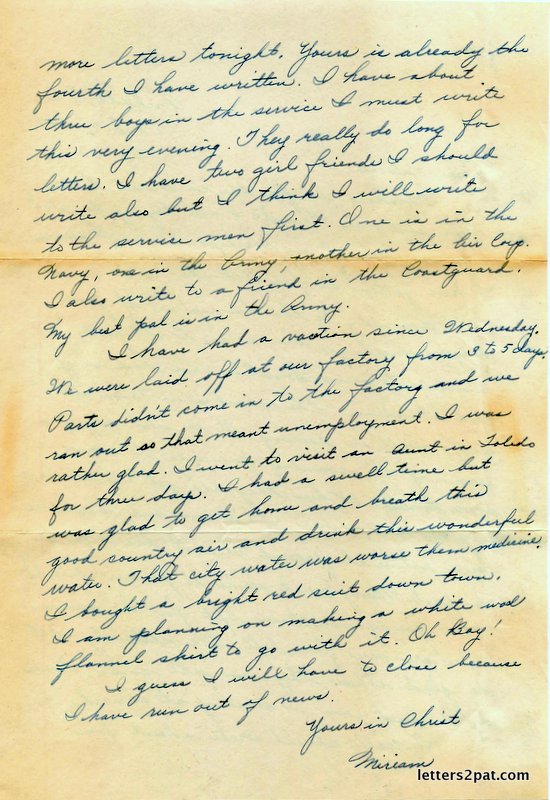 more letters tonight. Yours is already the
fourth I have written. I have about
three boys in the service I must write
this very evening. They really do long for
letters. I have two girl friends I should
write also but I think I will write
to the service men first. One is in the
Navy, one in the Army, another in the Air Corp.
I also write to a friend in the Coastguard.
My best pal is in the Army.
I have had a vaction since Wednesday.
We were laid off at our factory from 3 to 5 days.
Parts didn't come in to the factory and we
ran out so that meant unemployment. I was
rather glad. I went to visit an Aunt in Toledo
for three days. I had a swell time but
was glad to get home and breath this
good country air and drink this wonderful
water. That city water was worse them medicine.
I bought a bright red suit down town.
I am planning on making a white wool
flannel skirt to go with it. Oh Boy!
I guess I will have to close because
I have run out of news.
Yours in Christ
Miriam
letters2pat.com